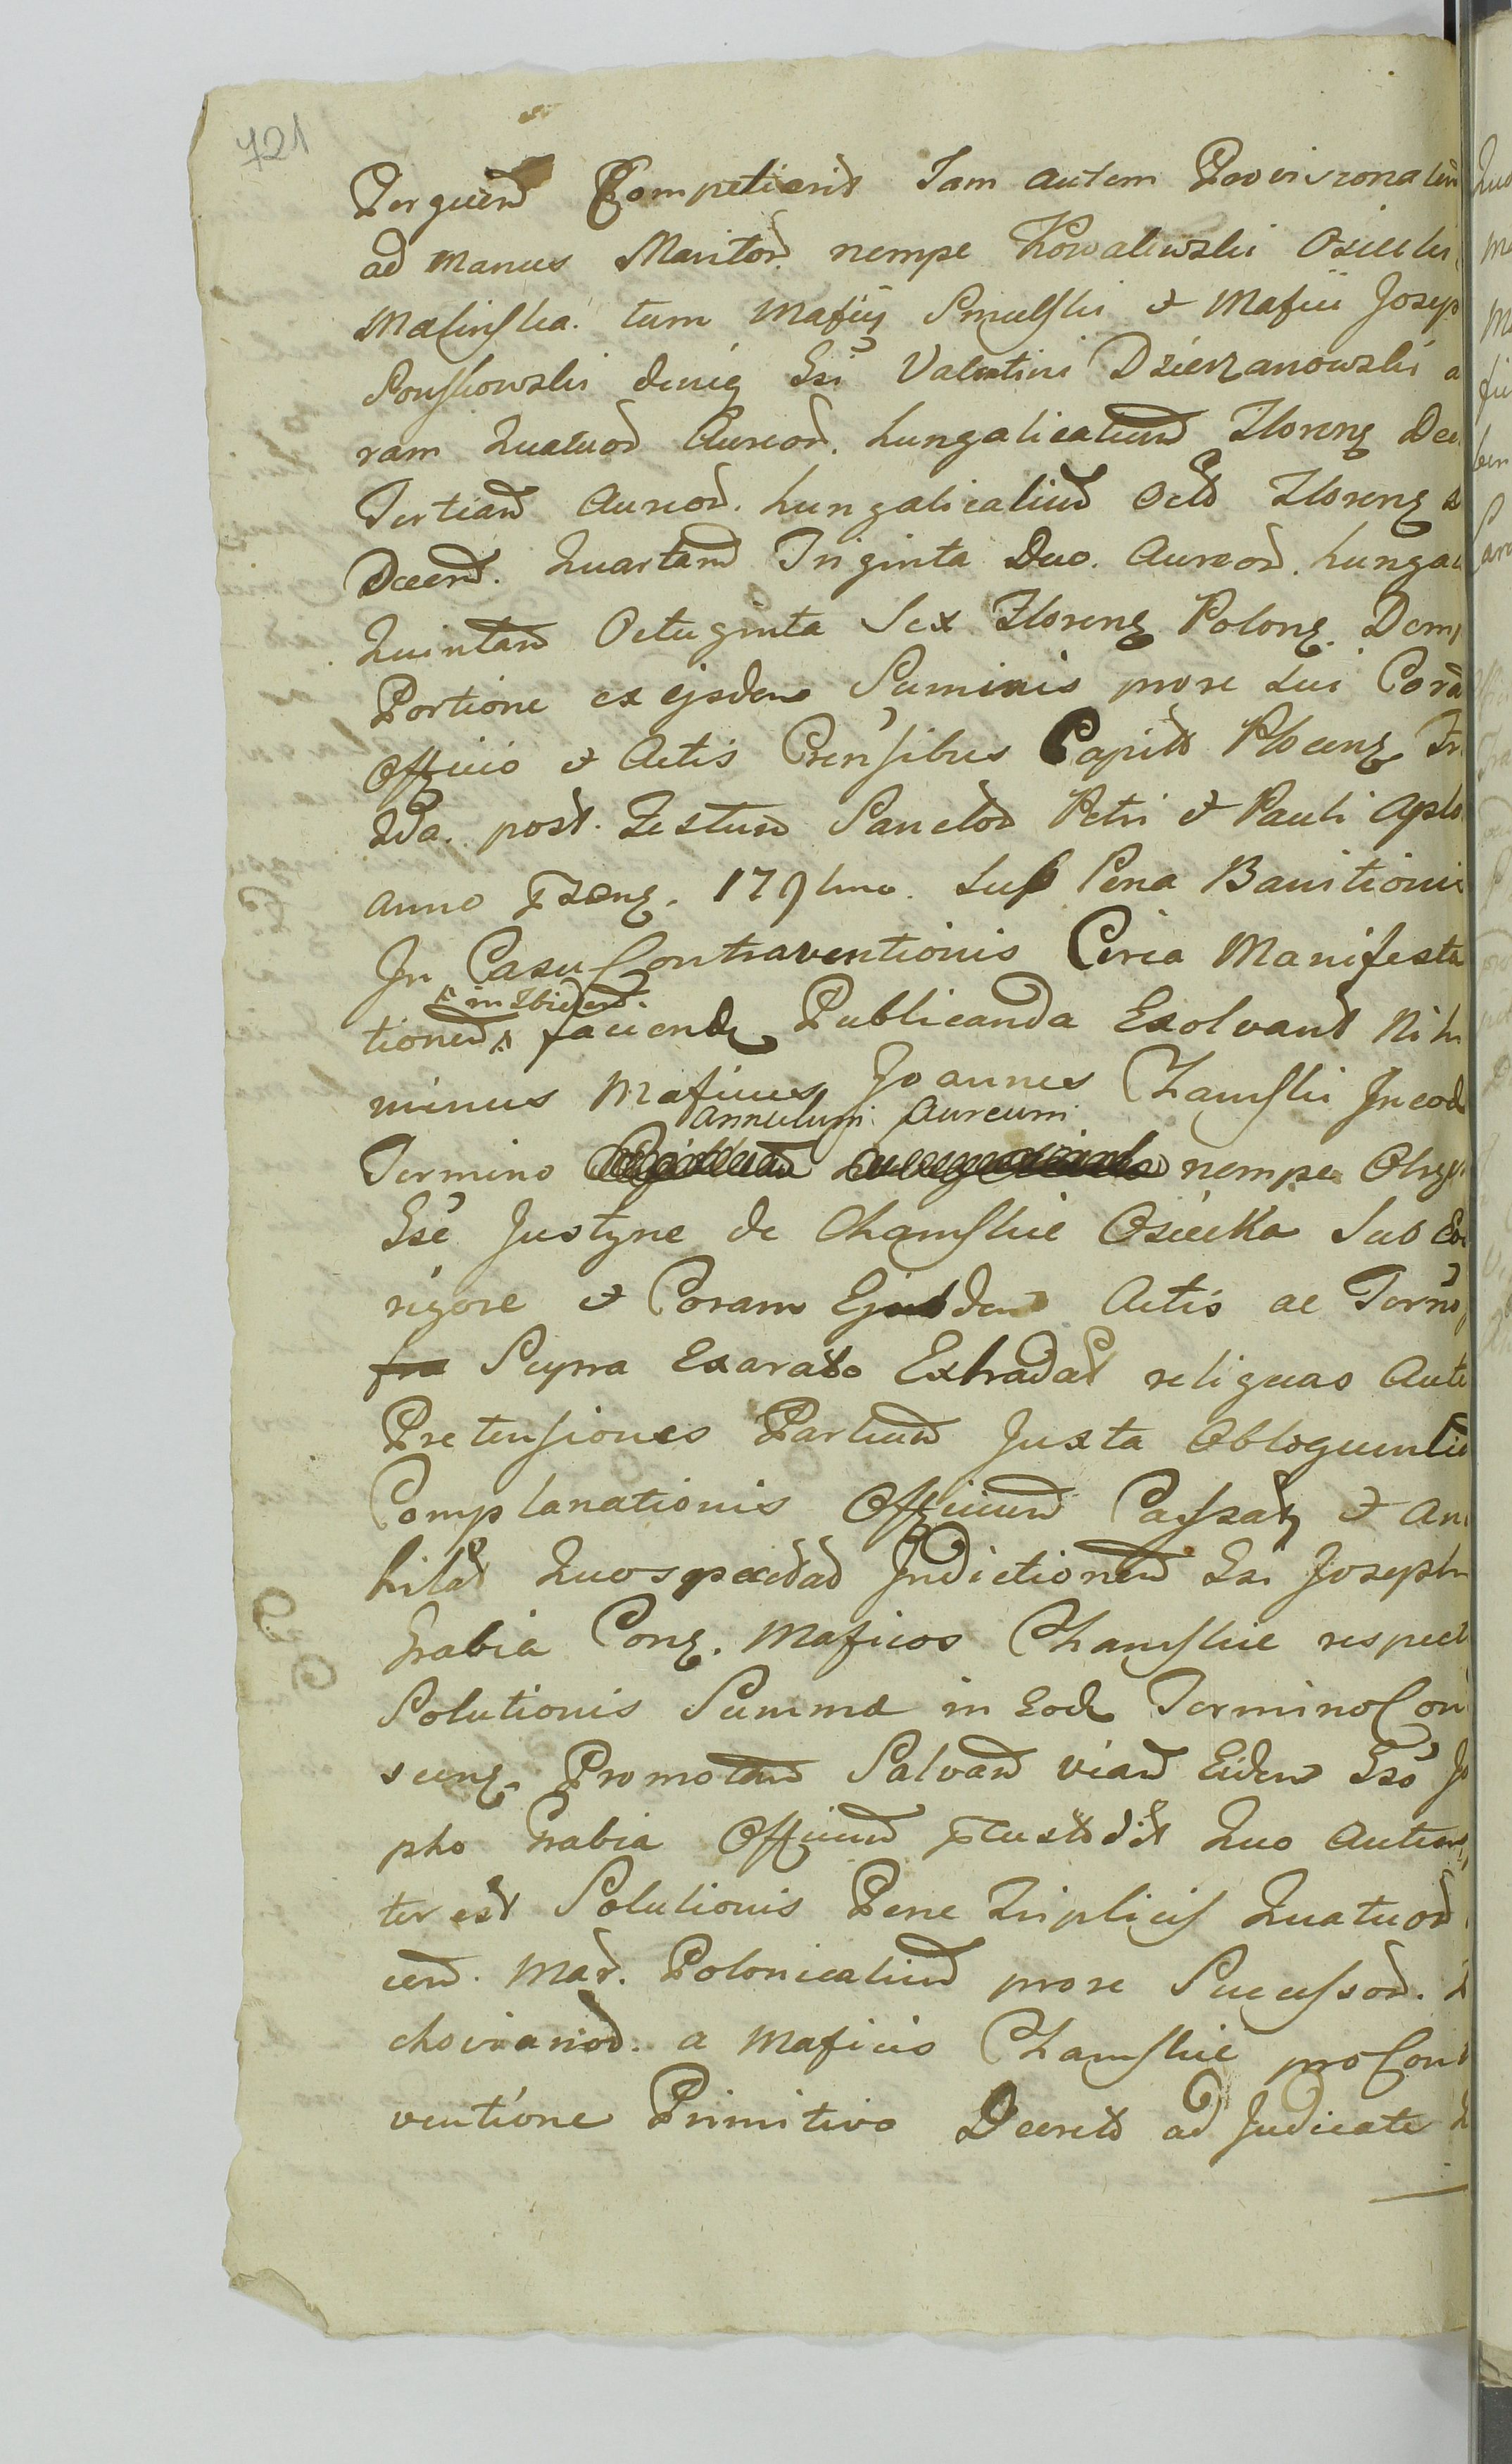 721
Perguend Competierit Iam autem Provisionalem
ad manus Maritor. nempe Kowalewski Osiecki
Malinska. tum Mafici Smulski et Mafici Josep
Ponskowski deniq Gsi Valentini Dzierzanowski a
ram Quatuor Aureor. hungalicalium Floreng Dec
Tertiam Aureor. hungalicalium Octo Floreng
Decem. Quartam Triginta Duo. Aureor. hunga
Quintam Octuginta Sex Floreng Polong. Dem
Portione ex ejsdem Summis prore sui Cora
Officio et Actis Crensibus Capitl Ploceng Fr
2da. post. Festum Sanctor Petri et Pauli Aplo
anno pseng. 179
sub Pena Banitionis
In Casu Contraventionis Circa Manifesta
in Ibidem.
tionem faciend Publicanda Exolvant Nih
minus Maficus Joannes Chamski In eod
annulum Aureum
Termino nempe
Gse Justyne de Chamskie Osiecka Sub Eo
rigore et Coram Ejusdem Actis ac Termo
fra Supra Exarato Extradat reliquas Aute
Pretensiones Partium Juxta Obloquentia
Complanationis Officium Cassat et an
hilat Quospectad Indictionem Gsi Joseph
Grabia Cong. Maficos Chamskie respect
Solutionis Summa in Eod Termino Con
seeng. Promotam Salvam viam Eidem Gso Jo
pho Grabia Officium pcustodit Quo Autem
ter est Solutionis Pene Triplicis Quatuor
cem. Mar. Polonicalium prore Successor.
choinanor. a Maficis Chamskie pro Cont
ventione Primitivo Decreto ad Judicate